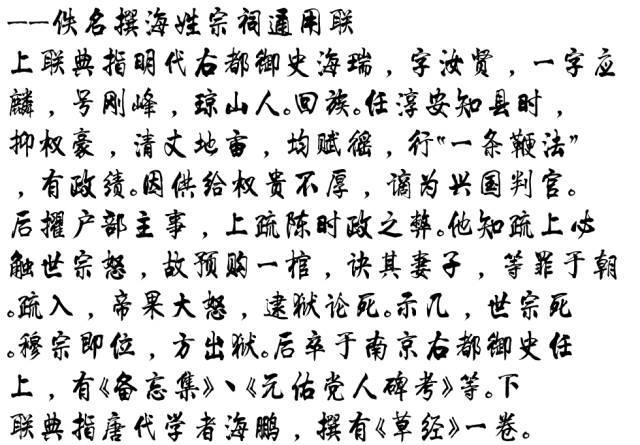 ——佚名撰海姓宗祠通用联
上联典指明代右都御史海瑞，字汝贤，一字应
麟，号刚峰，琼山人。回族。任淳安知县时，
抑权豪，清丈地亩，均赋徭，行“一条鞭法”
，有政绩。因供给权贵不厚，谪为兴国判官。
后擢户部主事，上疏陈时政之弊。他知疏上必
触世宗怒，故预购一棺，诀其妻子，等罪于朝
。疏入，帝果大怒，逮狱论死。示几，世宗死
。穆宗即位，方出狱。后卒于南京右都御史任
上，有《备忘集》、《元佑党人碑考》等。下
联典指唐代学者海鹏，撰有《草经》一卷。